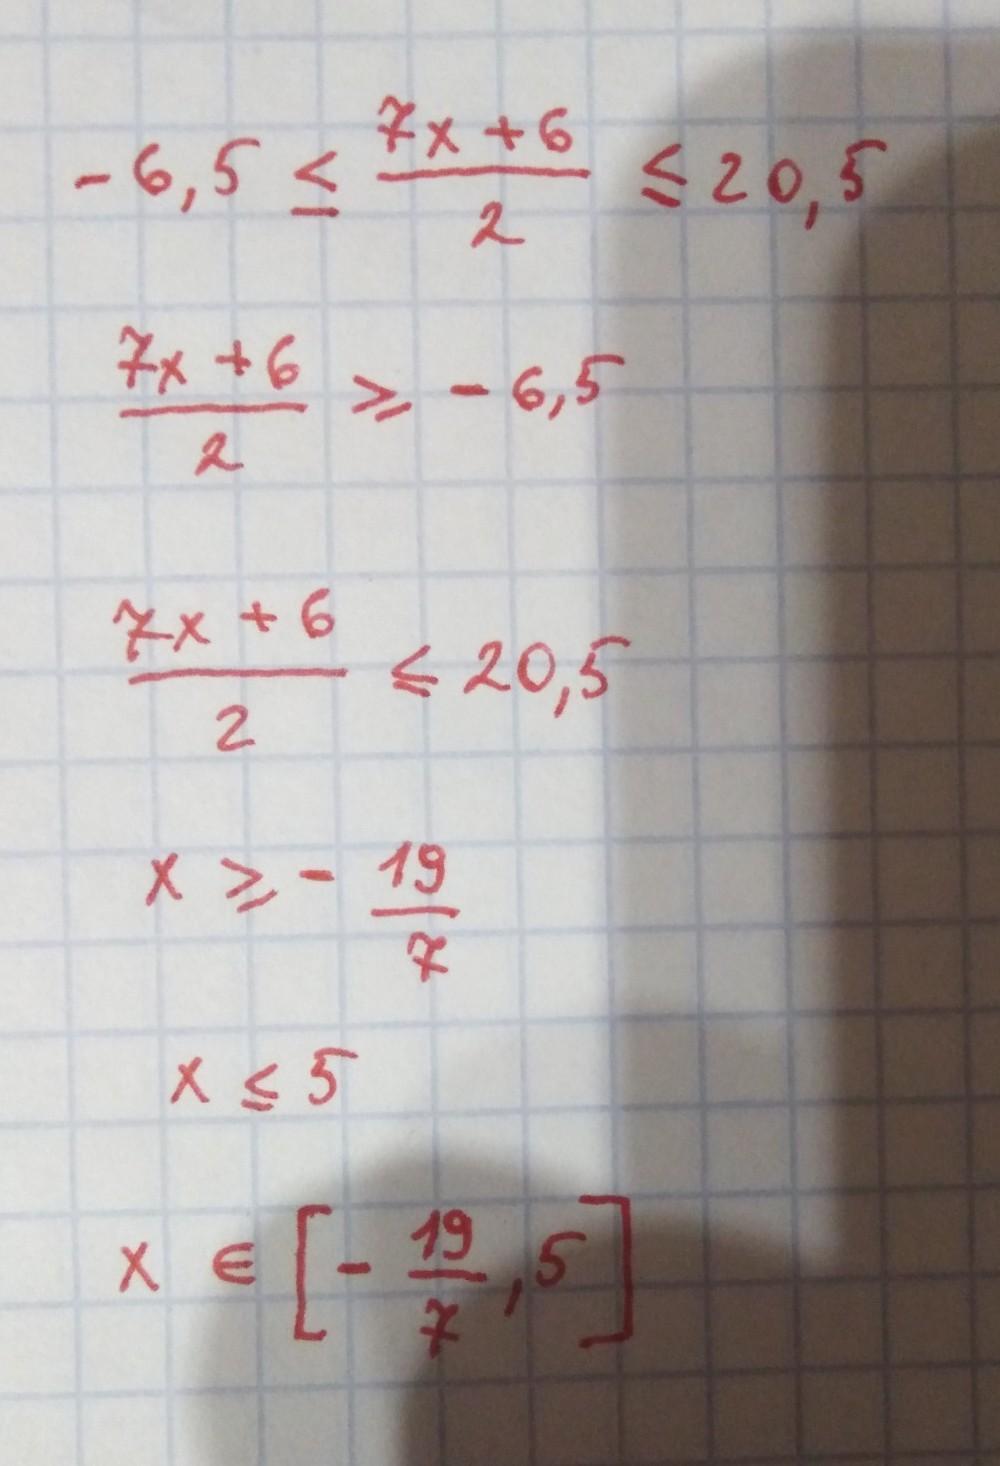 -6,5 ≤ \frac{7x+6}{2} ≤ 20,5
\frac{7x+6}{2} ⩾ -6,5
\frac{7x+6}{2} ≤ 20,5
x ⩾ -\frac{19}{7}
x ≤ 5
x ∈ [-\frac{19}{7},5]